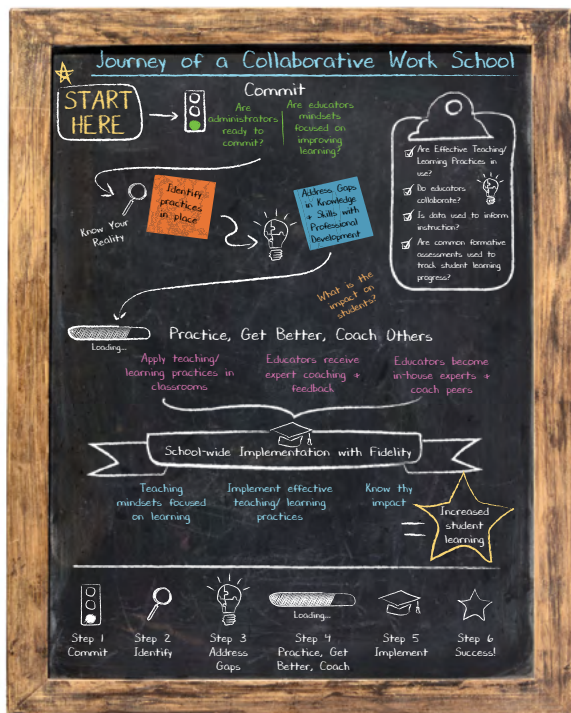 Journey of a Collaborative Work School
START
HERE
Commit
Are
administrators
ready to
commit?
Are educators
mindsets
focused on
improving
learning?
Are Effective Teaching/
Learning Practices in
use?
Do educators
collaborate?
Is data used to inform
instruction?
Are common formative
assessments used to
track student learning
progress?
Know Your
Reality
Identify
practices
in place
Address Gaps
in Knowledge
+ Skills with
Professional
Development
What is the
impact on
students?
Loading...
Practice, Get Better, Coach Others
Apply teaching/
learning practices in
classrooms
Educators receive
expert coaching +
feedback
Educators become
in-house experts +
coach peers
School-wide Implementation with Fidelity
Teaching
mindsets focused
on learning
Implement effective
teaching/ learning
practices
Know thy
impact
=
Increased
student
learning
Loading...
Step 1
Commit
Step 2
Identify
Step 3
Address
Gaps
Step 4
Practice, Get
Better, Coach
Step 5
Implement
Step 6
Success!